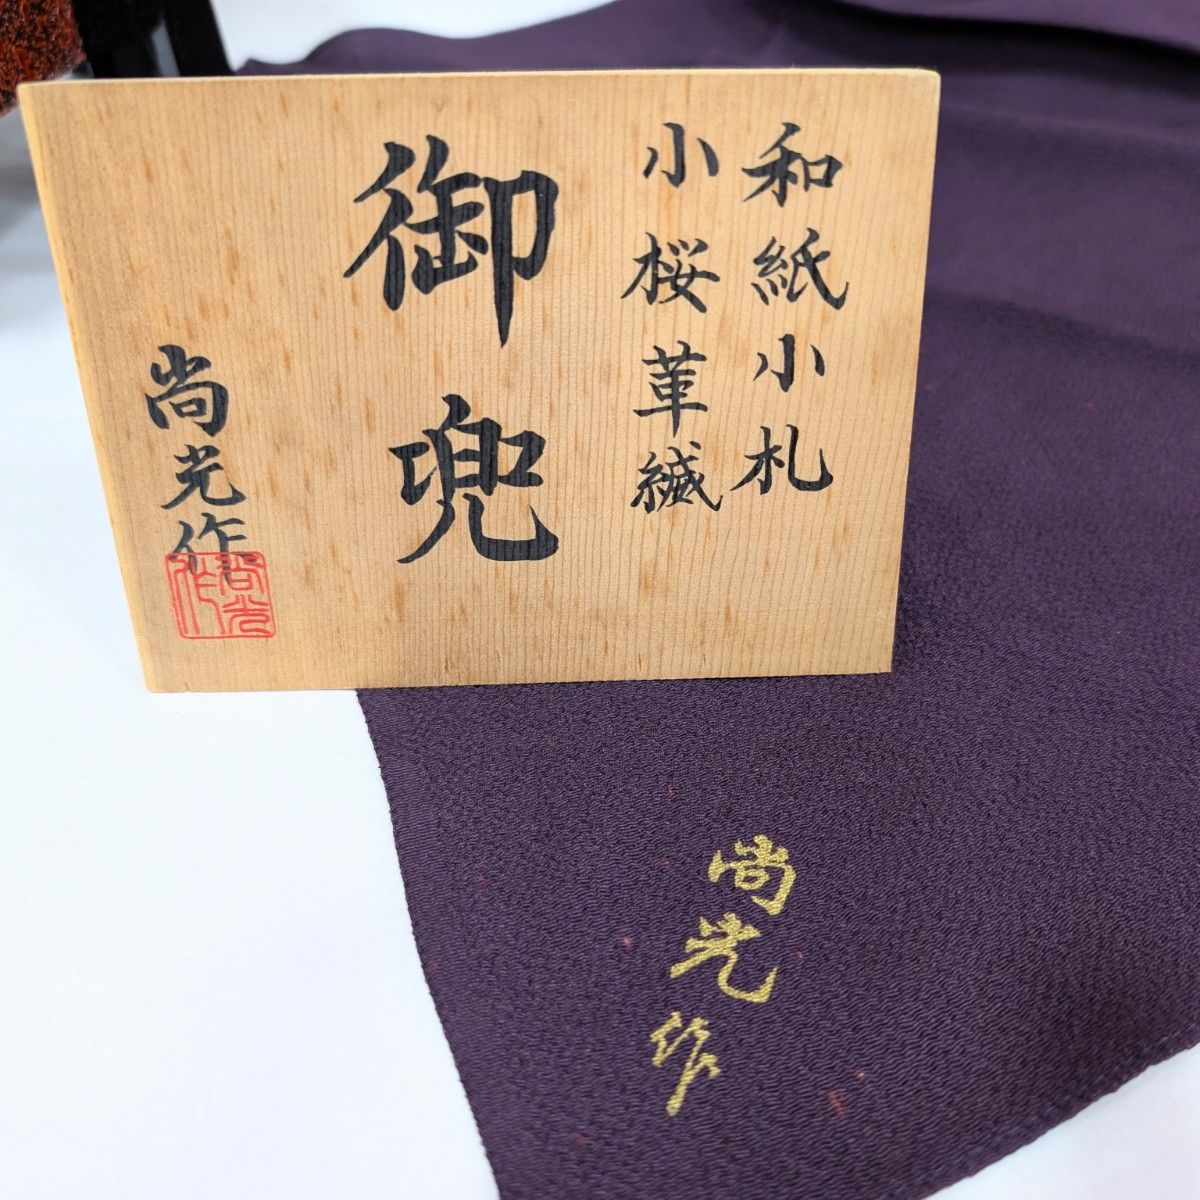 和紙小札
小桜革縅
御兜
尚光作
尚光作
尚光作